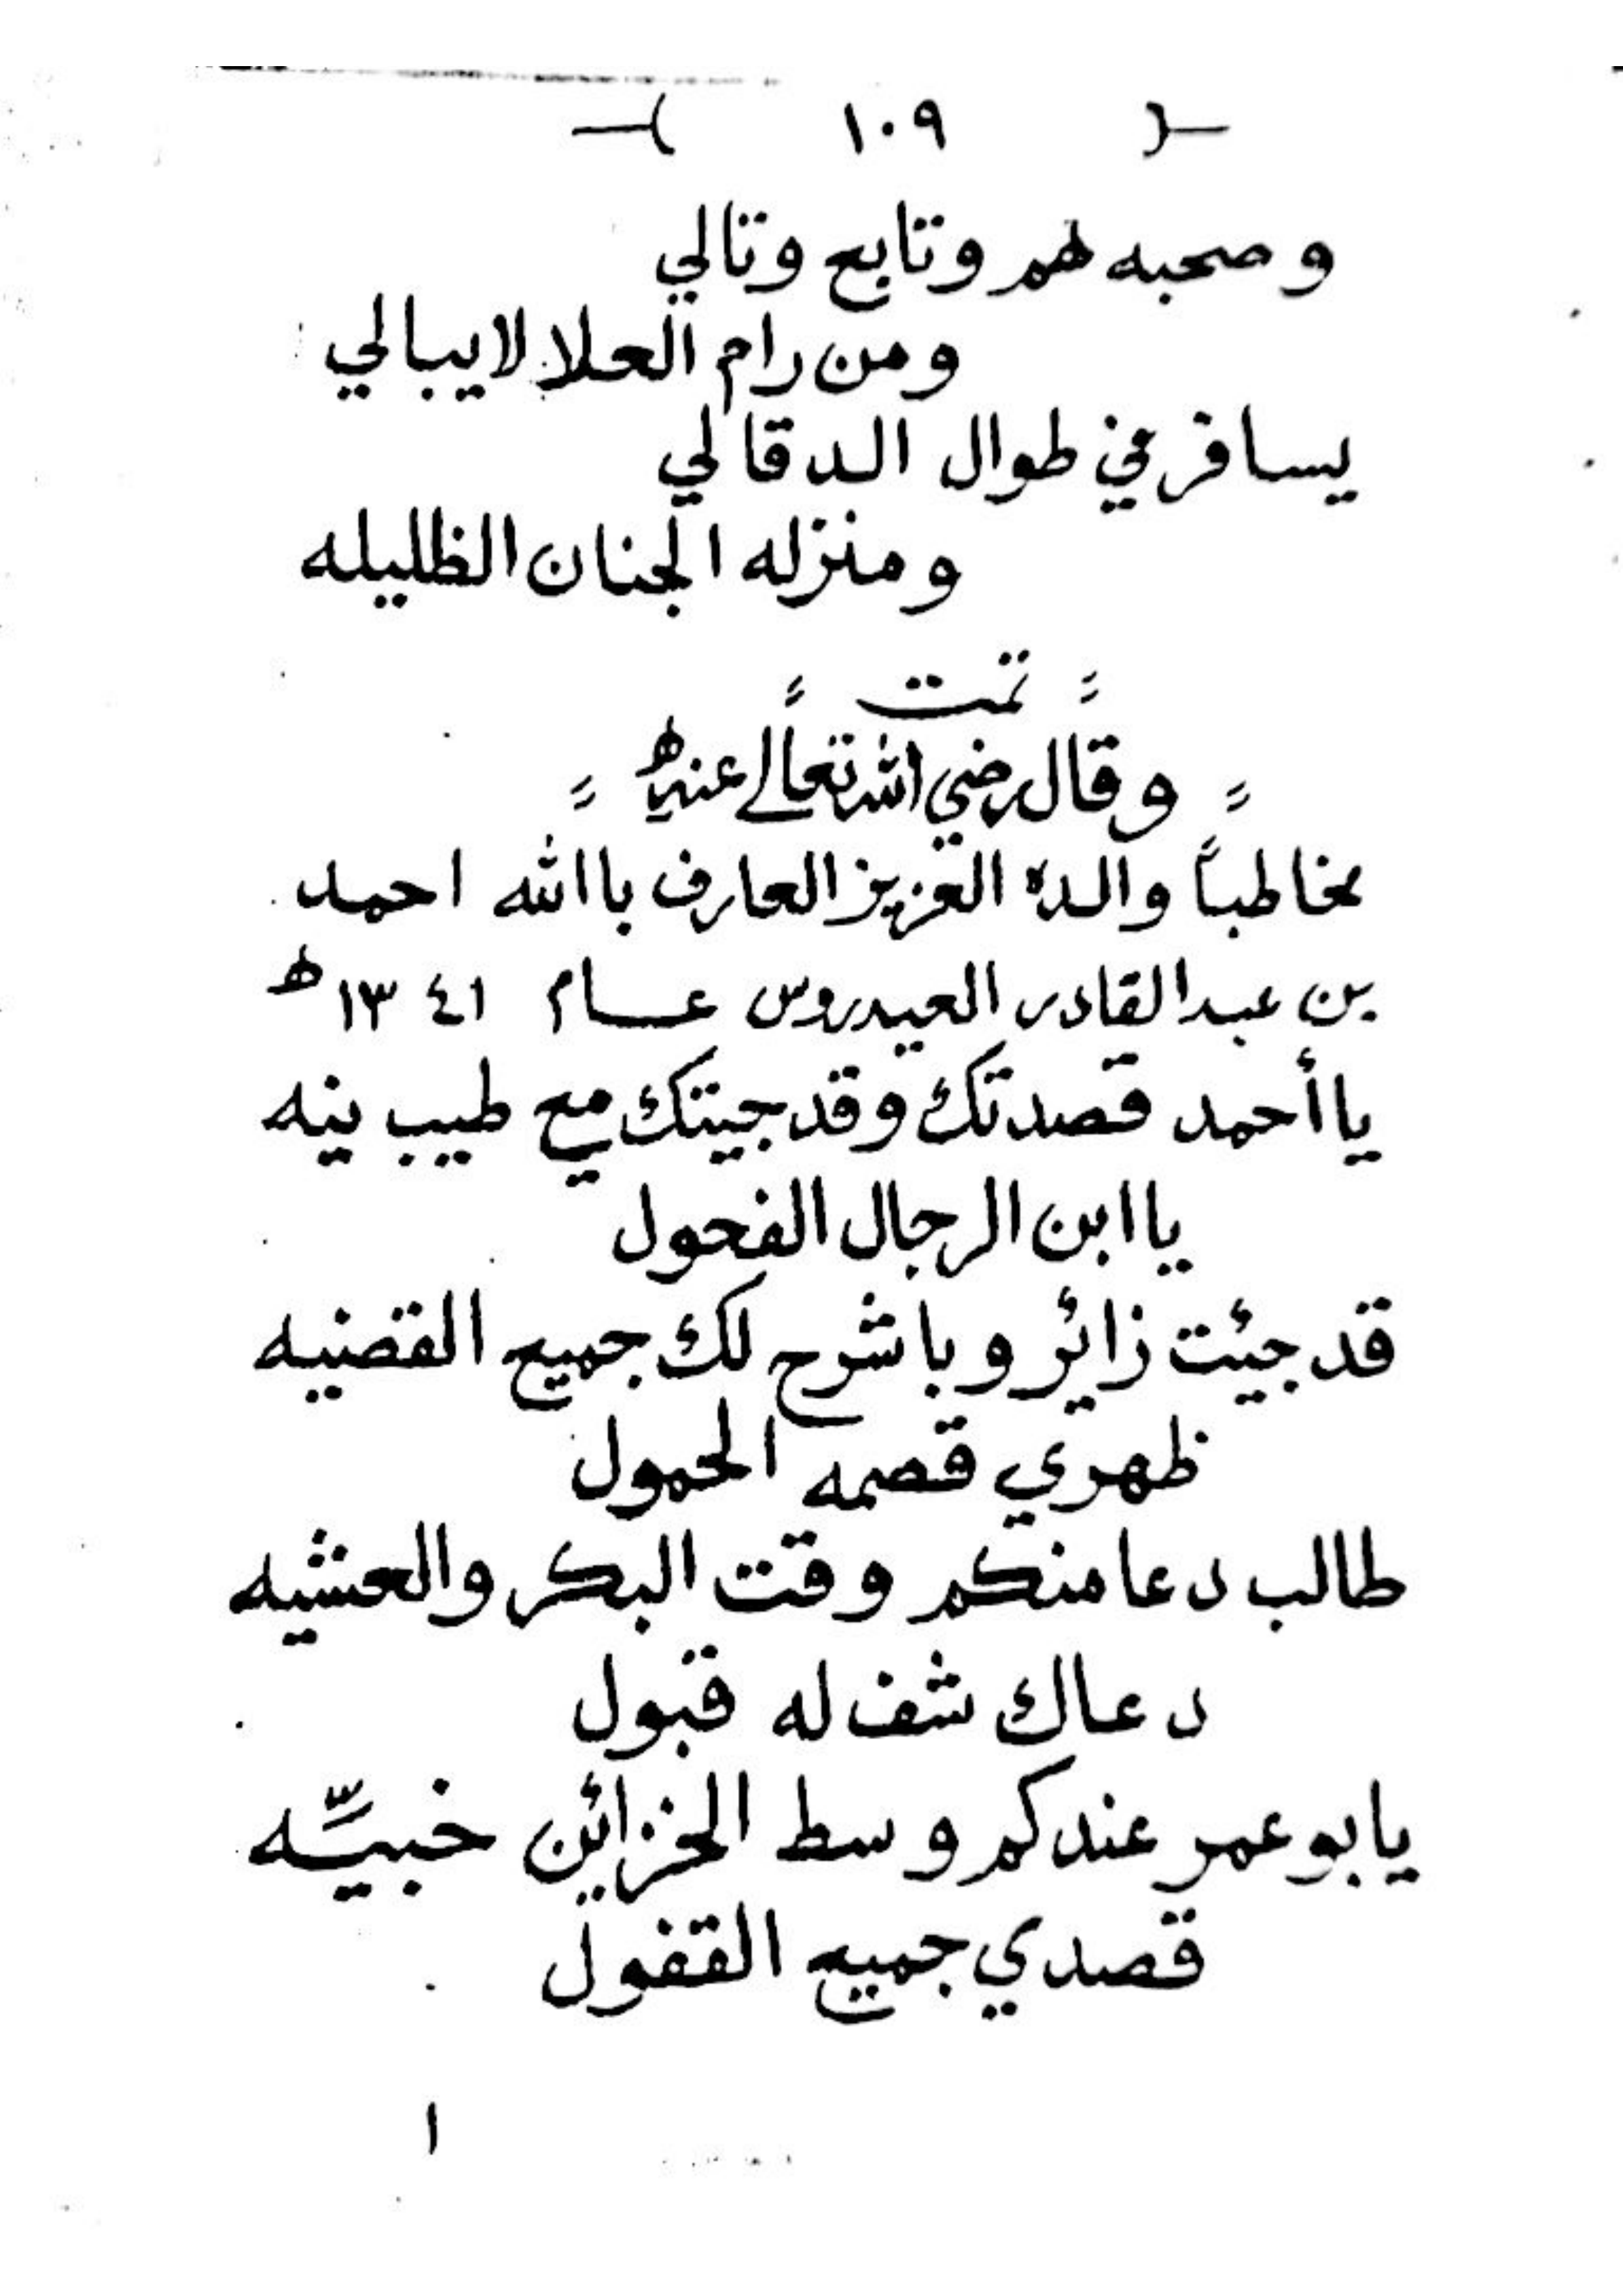 ١٠٩
وصحبه لهم وتابع وتالي
ومن رام العلا لايبالي
يسافر في طوال الدقالي
ومنزله الجنان الظليله
تمت
وقال رضي الله تعالى عنه
مخاطباً والده العزيز العارف باالله احمد
بن عبدالقادر العيدروس عام ١٣٤١ ه
ياأحمد قصدتك وقد جيتك مع طيب نيه
ياابن الرجال الفحول
قد جيئت زائر وباشرح لك جميع القضيه
ظهري قصمه الحمول
طالب دعا منكم وقت البكر والعشيه
دعاك شف له قبول
يابوعمر عندكم وسط الخزائن خبيّه
قصدي جميع القفول